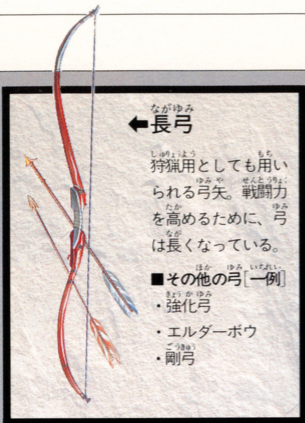 ←長弓
狩猟用としても用い
られる弓矢。戦闘力
を高めるために、弓
は長くなっている。
■その他の弓[一例]
・強化弓
・エルダーボウ
・剛弓